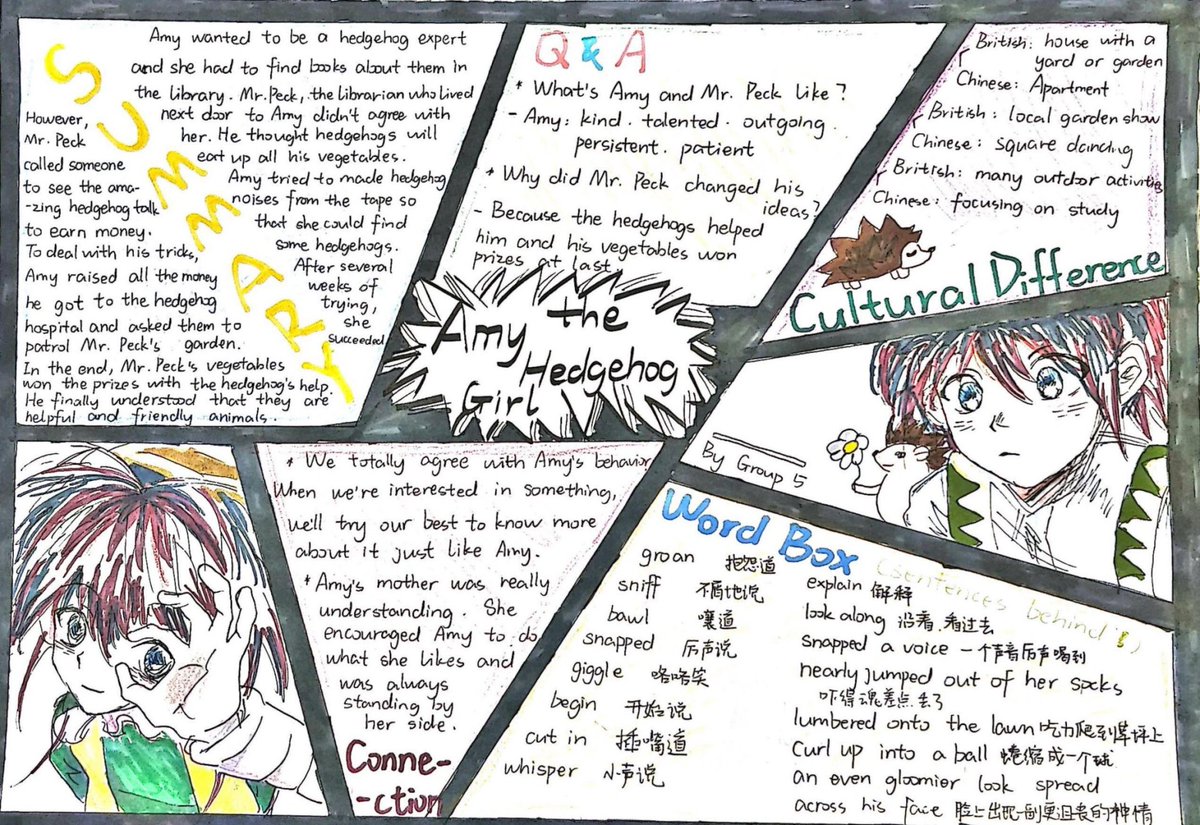 SUMMARY
Amy wanted to be a hedgehog expert
and she had to find books about them in
the library. Mr. Peck, the librarian who lived
next door to Amy didn't agree with
her. He thought hedgehogs will
eat up all his vegetables.
Amy tried to made hedgehog
noises from the tape so
that she could find
some hedgehogs.
After several
weeks of
trying,
she
succeeded
However,
Mr. Peck
called someone
to see the ama-
-zing hedgehog talk
to earn money.
To deal with his tricks,
Amy raised all the money
he got to the hedgehog
hospital and asked them to
patrol Mr. Peck's garden.
In the end, Mr. Peck's vegetables
won the prizes with the hedgehog's help.
He finally understood that they are
helpful and friendly animals.
Q & A
* What's Amy and Mr. Peck like?
- Amy: kind. talented. outgoing.
persistent. patient
* Why did Mr. Peck changed his
ideas?
- Because the hedgehogs helped
him and his vegetables won
prizes at last
British: house with a
yard or garden
Chinese: Apartment
British: local garden show
Chinese: square dancing
British: many outdoor activities
Chinese: focusing on study
Cultural Difference
Amy the
Hedgehog
Girl
By Group 5
* We totally agree with Amy's behavior
When we're interested in something,
we'll try our best to know more
about it just like Amy.
* Amy's mother was really
understanding. She
encouraged Amy to do
what she likes and
was always
standing by
her side.
Conne-
-ction
Word Box
(sentences behind!)
groan 抱怨道
sniff 不屑地说
bawl 嚷道
snapped 厉声说
giggle 咯咯笑
begin 开始说
cut in 插嘴道
whisper 小声说
explain 解释
look along 沿着.看过去
snapped a voice 一个声音厉声喝到
nearly jumped out of her socks
吓得魂差点丢了
lumbered onto the lawn 吃力爬到草坪上
curl up into a ball 蜷缩成一个球
an even gloomier look spread
across his face 脸上出现一副更沮丧的神情